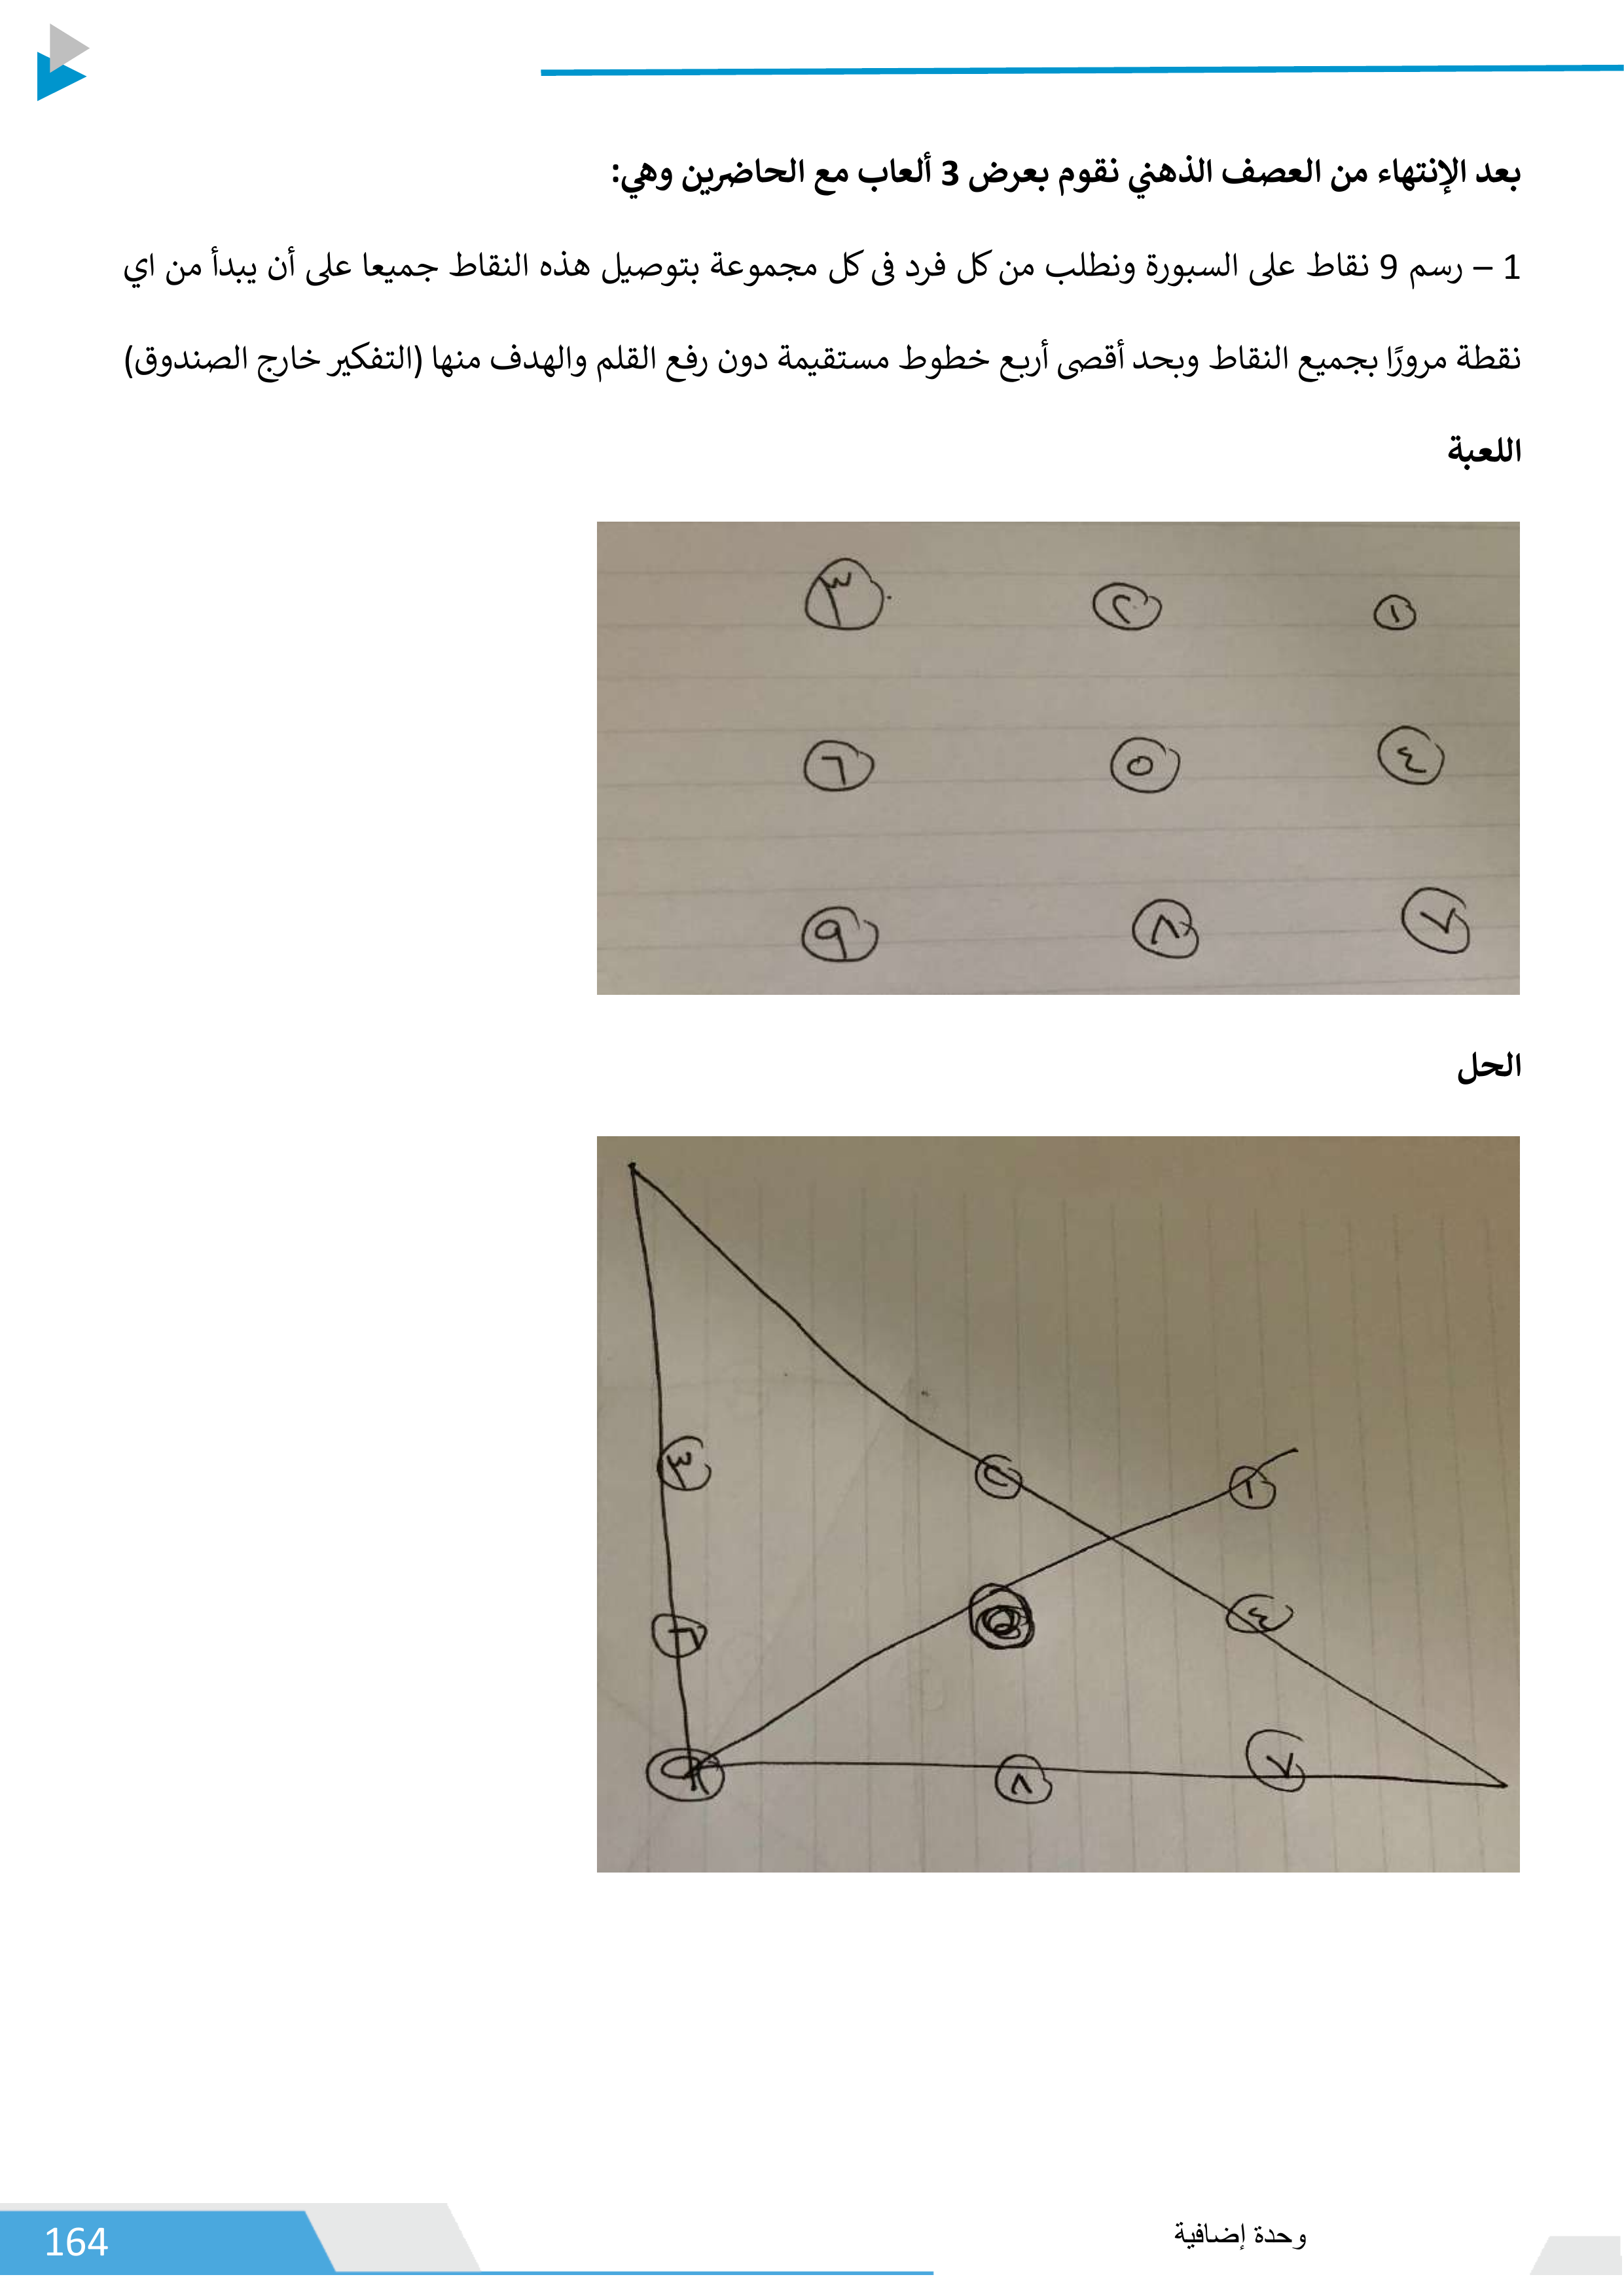 بعد الإنتهاء من العصف الذهني نقوم بعرض 3 ألعاب مع الحاضرين وهي:
1 – رسم 9 نقاط على السبورة ونطلب من كل فرد فى كل مجموعة بتوصيل هذه النقاط جميعا على أن يبدأ من اي
نقطة مرورًا بجميع النقاط وبحد أقصى أربع خطوط مستقيمة دون رفع القلم والهدف منها (التفكير خارج الصندوق)
اللعبة
١ ٢ ٣
٤ ٥ ٦
٧ ٨ ٩
الحل
١ ٢ ٣
٤ ٥ ٦
٧ ٨ ٩
وحدة إضافية
164